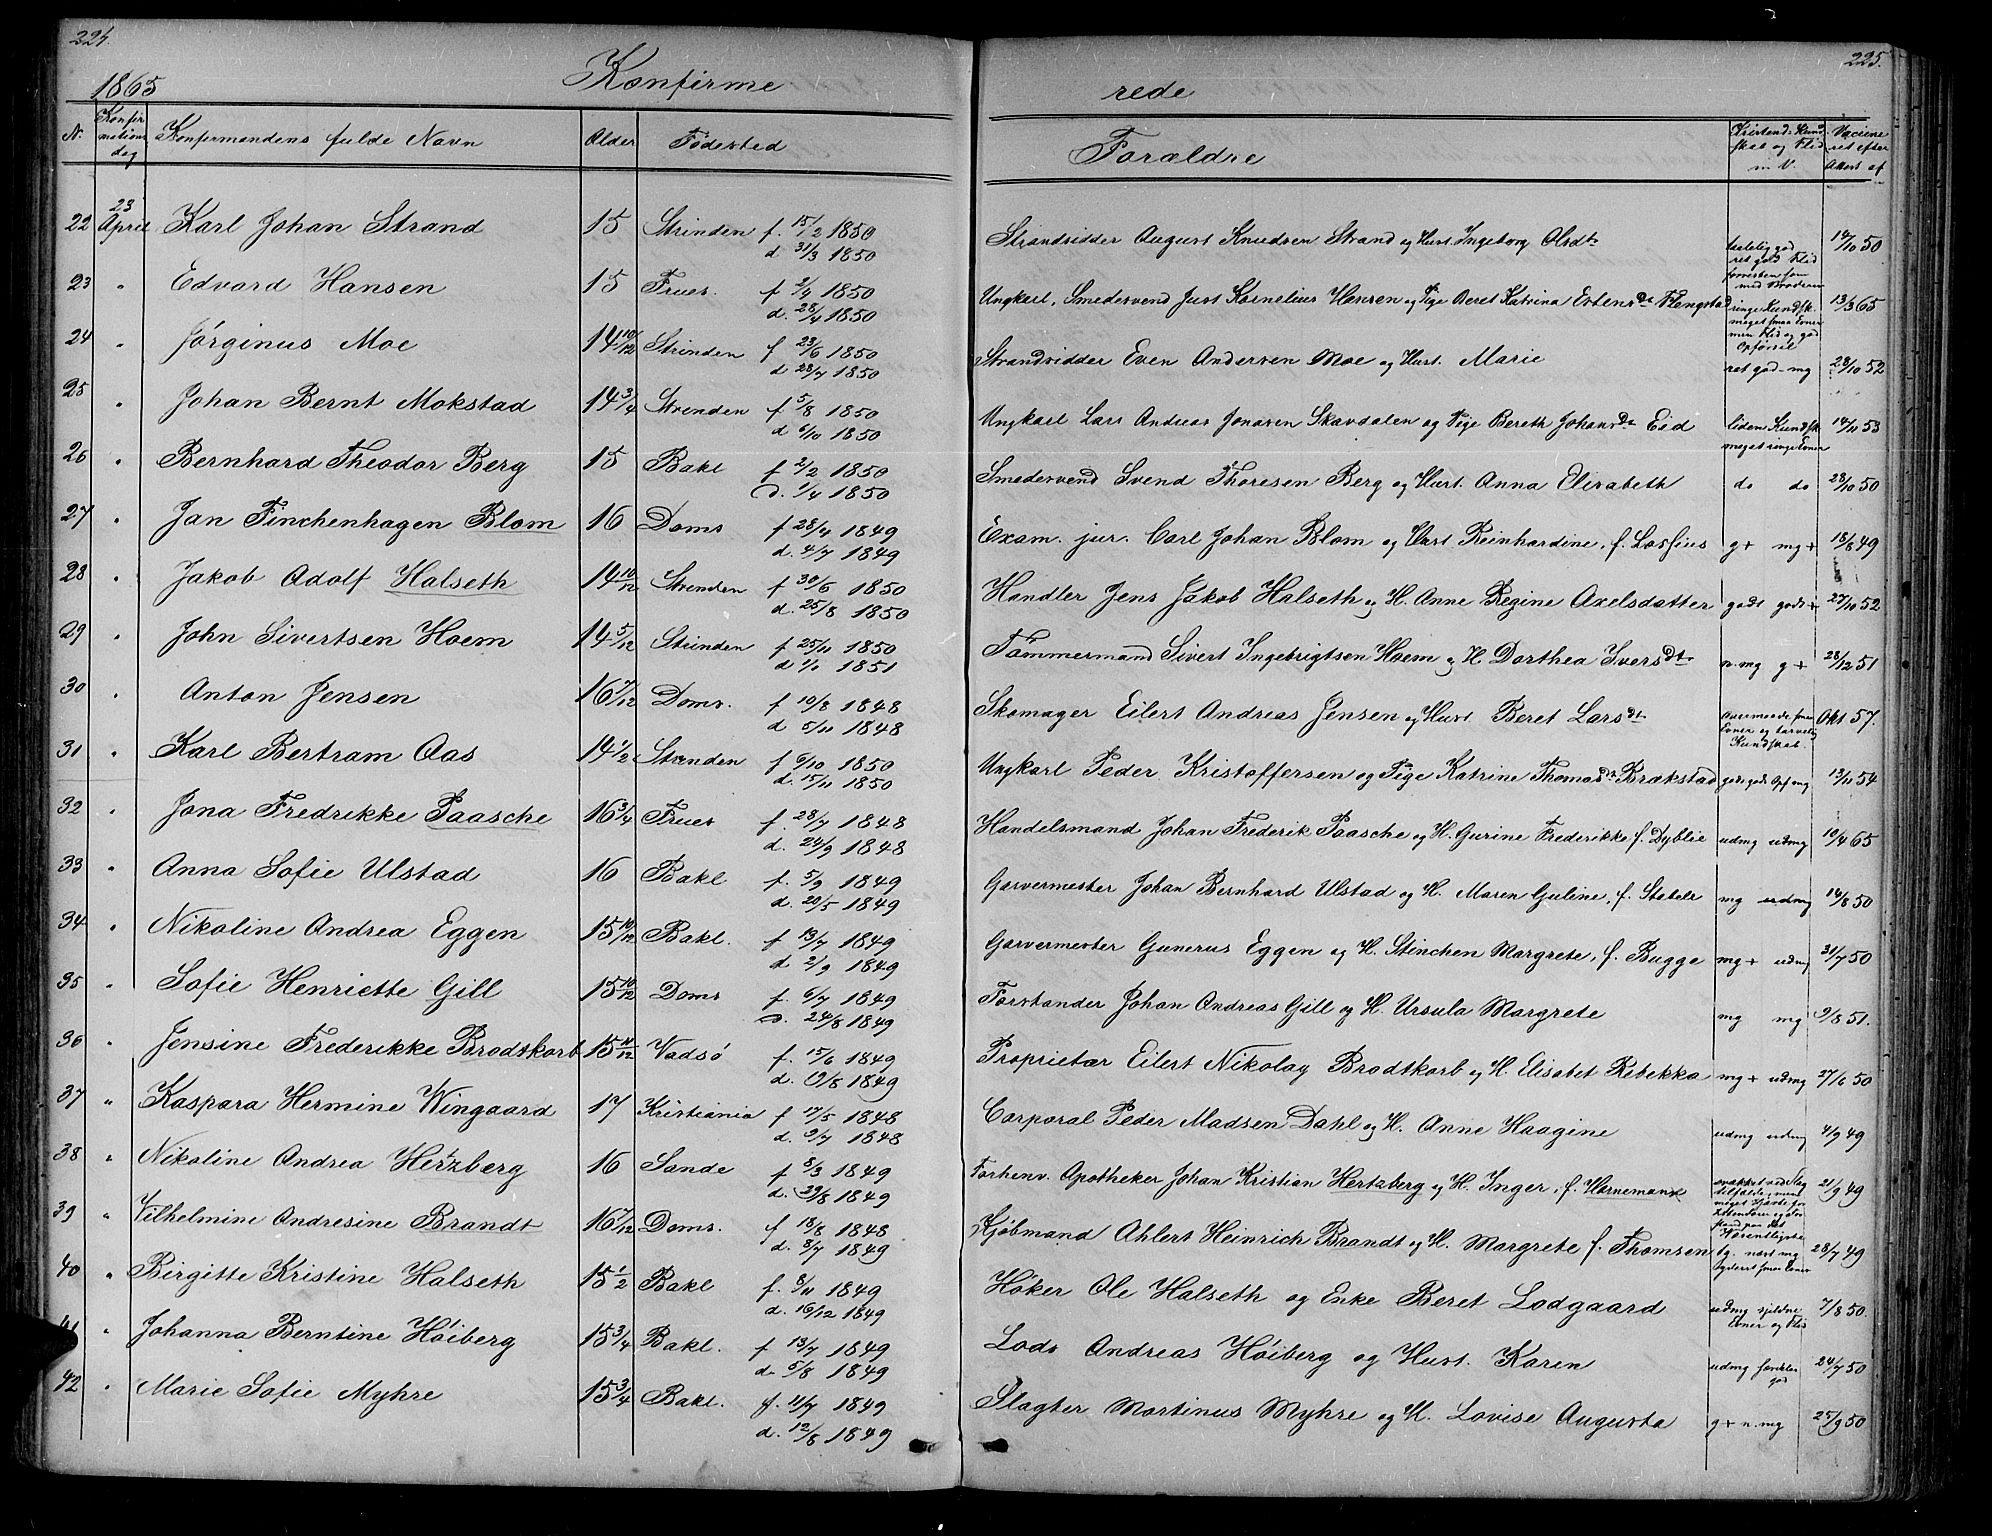 224.
225.
1865
Konfirme
rede
N. Konfirmations dag Konfirmandens fulde Navn Alder Födested Forældre Kristend. Kundskab og Flid m. V. Vaccineret efter Attest af
22 23 April Karl Johan Strand 15 Strinden f. 15/12 1850 Strandsidder August Knudsen Strand og Hust. Ingeborg Olsdt 14/10 50
d 31/3 1850
23 " Edvard Hansen 15 Frues. f 2/4 1850 Ungkarl, Smedesvend Just Kornelius Hansen og Pige Beret Katrina Estensdt Flengstad 13/3 65
d. 28/4 1850
24 " Jörginus Moe 14 10/12 Strinden f 23/6 1850 Strandsidder Even Andersen Moe og Hust. Marie ret god - mg 28/10 52
d 28/7 1850
25 " Johan Bernt Mokstad 14 3/4 Strinden f 5/8 1850 Ungkarl Lars Andreas Jonasen Skavdalen og Pige Bereth Johansdt Eid liden Kundsk. meget ringe Evner 14/11 53
d 6/10 1850
26 " Bernhard Theodor Berg 15 Bakl f 2/2 1850 Smedesvend Svend Thoresen Berg og Hust. Anna Elisabeth do do 28/10 50
d. 1/4 1850
27 " Jan Finchenhagen Blom 16 Doms f 28/4 1849 Exam. jur. Carl Johan Blom og Hust Reinhardine, f. Lossius g+ mg+ 18/8 49
d. 4/7 1849
28 " Jakob Adolf Halseth 14 10/12 Strinden f 30/6 1850 Handler Jens Jakob Halseth og H. Anne Regine Axelsdatter godt godt+ 27/10 52
d. 25/8 1850
29 " John Sivertsen Hoem 14 5/12 Strinden f 25/11 1850 Tömmermand Sivert Ingebrigtsen Hoem og H Dorthea Iversdt n. mg g+ 28/12 51
d 1/1 1851
30 " Anton Jensen 16 7/12 Doms. f 10/8 1848 Skomager Eilert Andreas Jensen og Hust Beret Larsdt Okt 57.
d 5/11 1848
31 " Karl Bertram Aas 14 1/2 Strinden f 6/10 1850 Ungkarl Peder Kristoffersen og Pige Katrine Thomasdt Brækstad 13/11 54
d. 15/11 1850
32 " Jona Fredrikke Paasche 16 3/4 Frues f. 28/7 1848 Handelsmand Johan Frederik Paasche og H. Gurine Frederikke f. Dyblie udmg udmg 10/4 65
d. 24/9 1848
33 " Anna Sofie Ulstad 16 Bakl f. 5/9 1849 Garvermester Johan Bernhard Ulstad og H. Maren Guline, f. Stabell mg udmg 14/8 50
d. 20/5 1849
34 " Nikoline Andrea Eggen 15 10/12 Bakl. f 13/7 1849 Garvermester Gunerus Eggen og H. Stinchen Margrete, f. Bugge mg+ udmg 31/7 50
d 2/9 1849
35 " Sofie Henriette Gill 15 10/12 Doms f. 6/7 1849 Forstander Johan Andreas Gill og H. Ursula Margrete mg mg 9/8 51.
d. 24/8 1849
36 " Jensine Frederikke Brodtkorb 15 11/12 Vadsö f. 15/6 1849 Proprietær Eilert Nikolay Brodtkorb og H. Elisabet Rebekka mg+ udmg 27/6 50
d. 9/8 1849
37 " Kaspara Hermine Wingaard 17 Kristiania f 17/5 1848 Corporal Peder Madsen Dahl og H. Anne Haagine udmg udmg 4/9 49
d. 9/7 1848
38 " Nikoline Andrea Hertzberg 16 Sande f 8/3 1849 Forhenv. Apotheker Johan Kristian Hertzberg og H. Inger, f. Hornemann 21/9 49
d. 29/8 1849
39 " Vilhelmine Andresine Brandt 16 7/12 Doms. f 18/8 1848 Kjöbmand Ahlert Heinrich Brandt og H. Margrete f. Thomsen 28/7 49
d. 8/7 1849
40 " Birgitte Kristine Halseth 15 1/2 Bakl f. 8/11 1849 Höker Ole Halseth og Enke Beret Lodgaard udmg sjeldne Evner og Flid 7/8 50.
d. 16/12 1849
41 " Johanna Berntine Höiberg 15 3/4 Bakl. f 13/7 1849 Lods Andreas Höiberg og Hust. Karen 24/7 50
d. 5/8 1849
42 " Marie Sofie Myhre 15 3/4 Bakl. f. 11/7 1849 Slagter Martinus Myhre og H. Lovise Augusta g+ n. mg 25/9 50
d. 12/8 1849